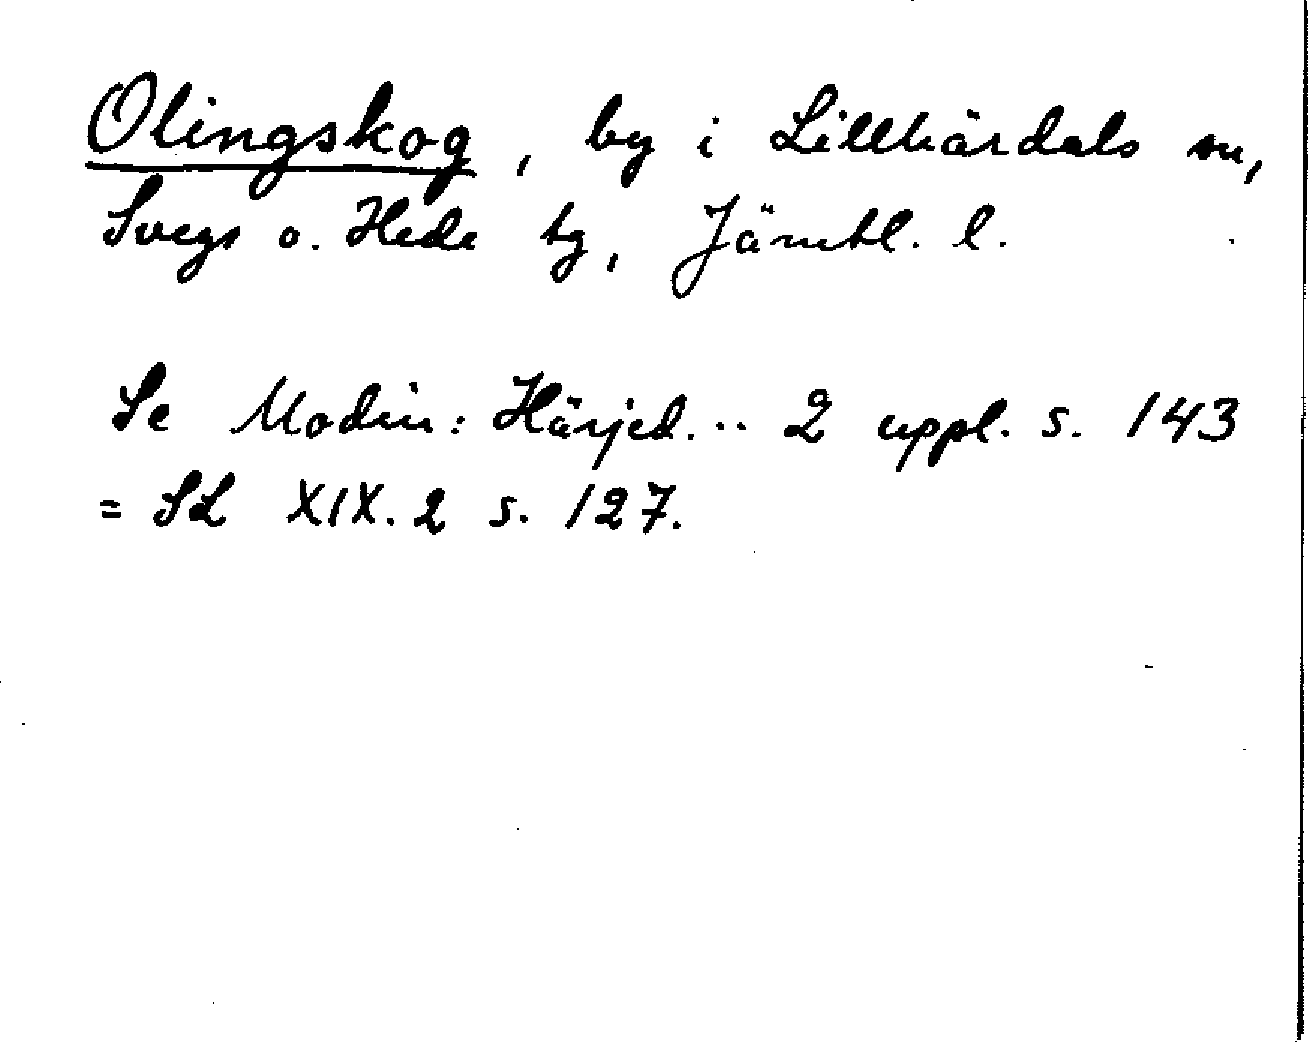 Olingskog, by i Lillhärdals sn,
Svegs o. Hede tg, Jämtl. l.
Se Modin: Härjed. .. 2 uppl. s. 143
= SL XIX. 2 s. 127.